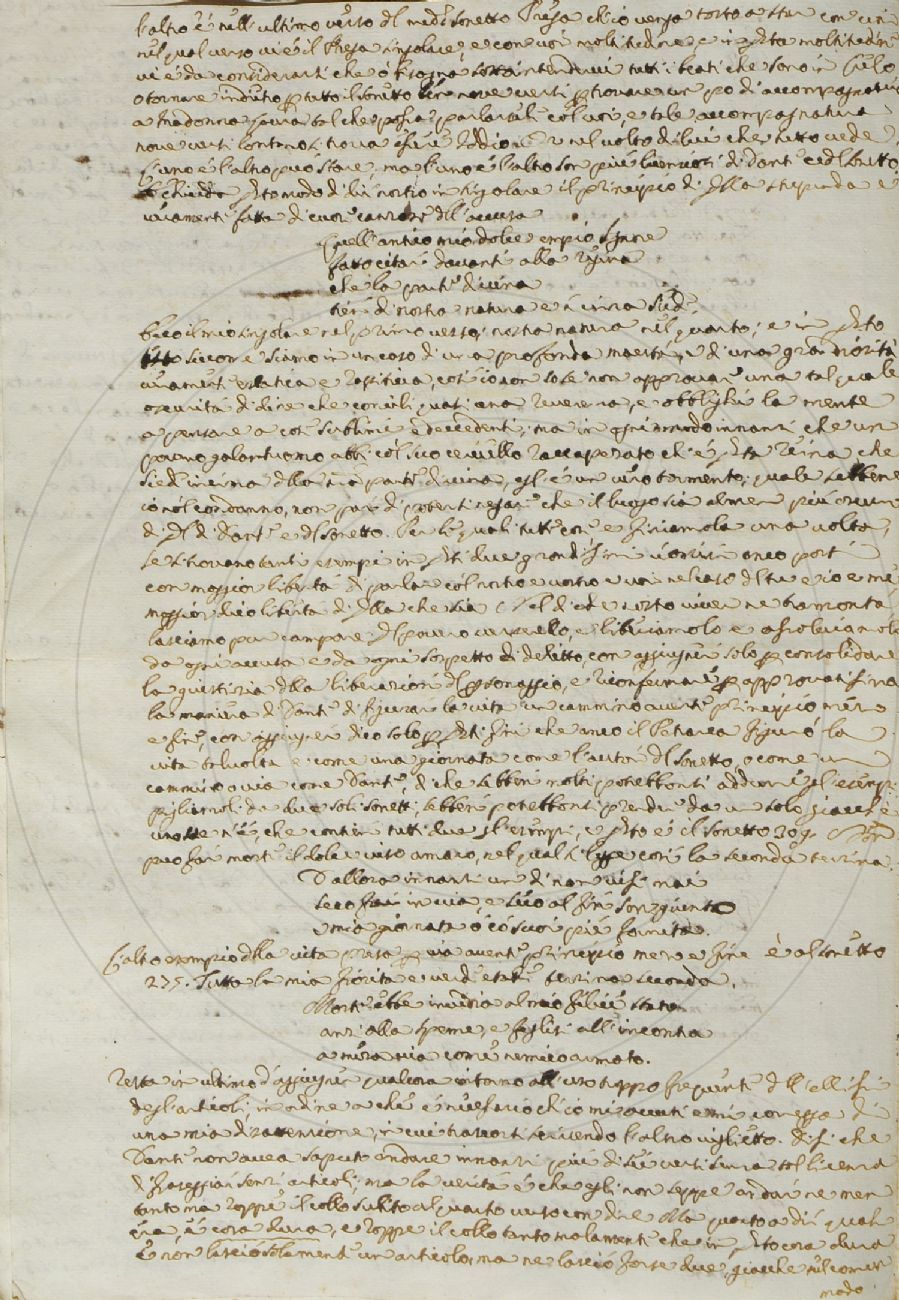 l'altro è nell'ultimo verso del med.o sonetto Presa ch'io venga torto a star con voi
nel qual verso vi è il Presa singolare, e con voi moltitudine, e in q.ta moltitudine
vi è da considerarsi che o bisogna sottointendervi tutti i beati che sono in Cielo
o tornare indietro p tutto il sonetto nove versi p trovare un po di accompagnatura
a Madonna senza tal che possa parlarsi col voi, e tale accompagnatura
nove versi lontano si trova esser Iddio nel volto di lui che tutto vede
l'uno e l'altro può stare, ma l'uno e l'altro son più di Dante e del sonetto
q.to modo di dir nostro in singolare il principio di q.lla stupenda e
veramente fatta di cuore canzone dell'accusa
Quell'antico mio dolce empio Signore
fatto citar davanti alla Reina
che la parte divina
tien di nostra natura e in cima siede,
Ecco il mio singolare nel primo verso, nostra natura nel quarto; e in q.to
siccome siamo in un caso di una profonda maestà, e di una gran
veramente estatica e, così io non so se non approvare una tal quale
oscurità di dire che concili quasi una reverenza, e obblighi la mente
a pensare a cose sublimi e; ma in q.sti innanzi che un
povero galantuomo abbi col suo cervello raccapezzato chi è q.ta Reina che
siede in cima della parte divina, egli è un vero tormento, quale sebbene
io nol condanno, non però di negare che il luogo sia almen più oscuro
di q.l di Dante e del sonetto. Per li quali tutti e finiamola una volta,
se si ritrovano tanti esempi in q.ti due grandissimi
con maggior libertà di parlar col nostro e vostro e voi nel caso del tu e io e me
maggior dico libertà di q.lla che sia Nel dì che corto viver ne tramonta,
lasciamo pur campare q.l povero versetto, e liberiamolo e assolviamolo
da ogni accusa e da ogni sospetto di delitto, con aggiugner solo p consolidare
la giustizia della liberazione del personaggio, e riconfermare p approvatissima
la maniera di Dante di figurar la vita un cammino avente principio mezzo
e fine, con aggiugner dico solo p q.ti fini che anco il Petrarca figurò la
vita tal volta e come una giornata come l'autor del sonetto, o come un
cammino o via come Dante, di che sebben molti potrebbonsi addurne gl'esempi
pigliamoli da due soli sonetti, sebben potrebbonsi prender da un solo giacchè
uno ve n'è, che contien tutti due gl'esempi, e q.to è il sonetto 309. Non
può far morte il dolce viso amaro, nel qual si legge così la seconda terzina.
D'allora innanzi un dì non vissi mai
seco fui in via e seco al fin son giunto
e mia giornata ò co suoi piè fornita.
L'altro esempio della vita presa p via avente principio mezzo e fine è al sonetto
275. Tutta la mia fiorita e verde etate terzina seconda.
Morte ebbe invidia al mio felice stato
anzi alla speme, e feglisi all'incontra
a mezza via come nemico armato.
Resta in ultimo d'aggiugner qualcosa intorno all'uso troppo frequente dell'ellissi
degl'articoli, in ordine a che è necessario ch'io mi accusi e mi corregga di
una mia disattenzione, in cui trascorsi scrivendo l'altro viglietto. Dissi che
Dante non avea saputo andare innanzi più di sei versi senza tal licenza
di senza articoli; ma la verità è che egli non seppe andarne men
tanto ma roppe il collo subito al quarto verso con dire Ma quanto a dir qual
era, è cosa dura, e roppe il collo tanto malamente che in q.to cosa dura
e non lasciò solamente un articolo, ma ne lasciò forse due, giacchè nel comun
modo